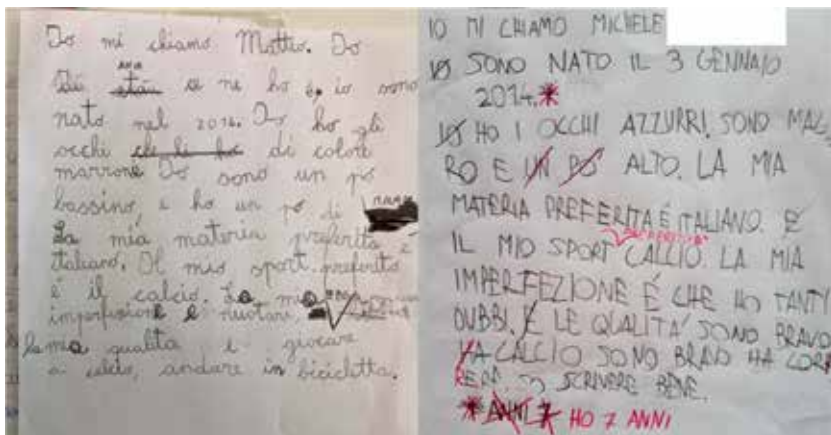 Io mi chiamo Matteo. Io
ANNI
di età e ne ho 6, io sono
nato nel 2014. Io ho gli
occhi che li ho di colore
marrone Io sono un pò
bassino, e ho un pò di
La mia materia preferita è
italiano. Il mio sport preferito
è il calcio. La mia
imperfezione è nuotare
La mia qualità è giocare
a calcio, andare in bicicletta.
IO MI CHIAMO MICHELE
IO SONO NATO IL 3 GENNAIO
2014.*
IO HO I OCCHI AZZURRI. SONO MAG
RO E UN PÒ ALTO. LA MIA
MATERIA PREFERITA É ITALIANO. E
IL MIO SPORT CALCIO. LA MIA
IMPERFEZIONE É CHE HO TANTI
DUBBI. E LE QUALITA' SONO BRAVO
HA CALCIO SONO BRAVO HA CORR
ERE. SO SCRIVERE BENE.
* ANNI 7 * HO 7 ANNI